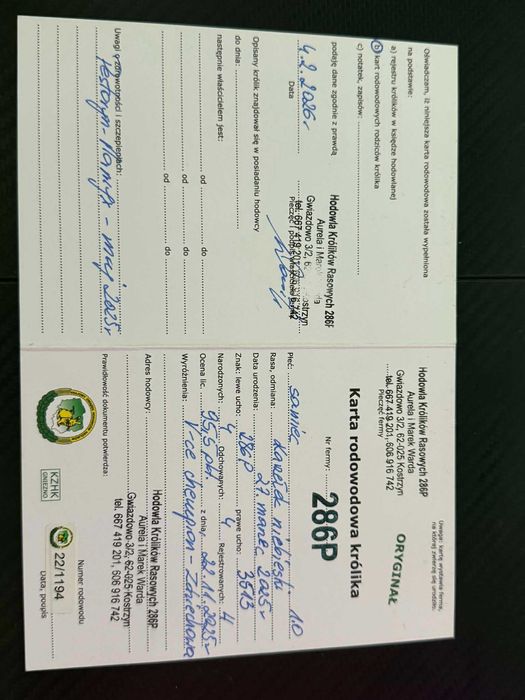 Uwaga: kartę wystawia ferma,
na której zwierzę się urodziło.
Hodowla Królików Rasowych 286P
Aurela i Marek Warda
Gwiazdowo 3/2, 62-025 Kostrzyn
tel. 667 419 201, 606 916 742
Pieczęć fermy
ORYGINAŁ
Karta rodowodowa królika
Nr fermy: 286P
Płeć: samiec 1.0
Rasa, odmiana: karzełek niebieski
Data urodzenia: 27 marca 2025r
Znak: lewe ucho: 286P prawe ucho: 3513
Narodzonych: 4 Odchowanych: 4 Rejestrowanych: 4
Ocena lic. 95,5 pkt. z dnia
Wyróżnienia: V-ce champion -
Adres hodowcy:
Hodowla Królików Rasowych 286P
Aurela i Marek Warda
Gwiazdowo 3/2, 62-025 Kostrzyn
tel. 667 419 201, 606 916 742
Prawidłowość dokumentu potwierdza:
KZHK
GNIEZNO
Numer rodowodu
22/1194
Data, popis
Oświadczam, iż niniejsza karta rodowodowa została wypełniona
na podstawie:
a) rejestru królików w księdze hodowlanej
b) kart rodowodowych rodziców królika
c) notatek, zapisów:
podaję dane zgodnie z prawdą
4.2.2026r
Data
Hodowla Królików Rasowych 286P
Aurela i Marek Warda
Gwiazdowo 3/2, 62-025 Kostrzyn
tel. 667 419 201, 606 916 742
Pieczęć i podpis właściciela fermy
Opisany królik znajdował się w posiadaniu hodowcy
do dnia:
następnie właścicielem jest:
od do
od do
od do
Uwagi o zdrowotności i szczepieniach:
Pestorym-Mamyx - maj 2025r